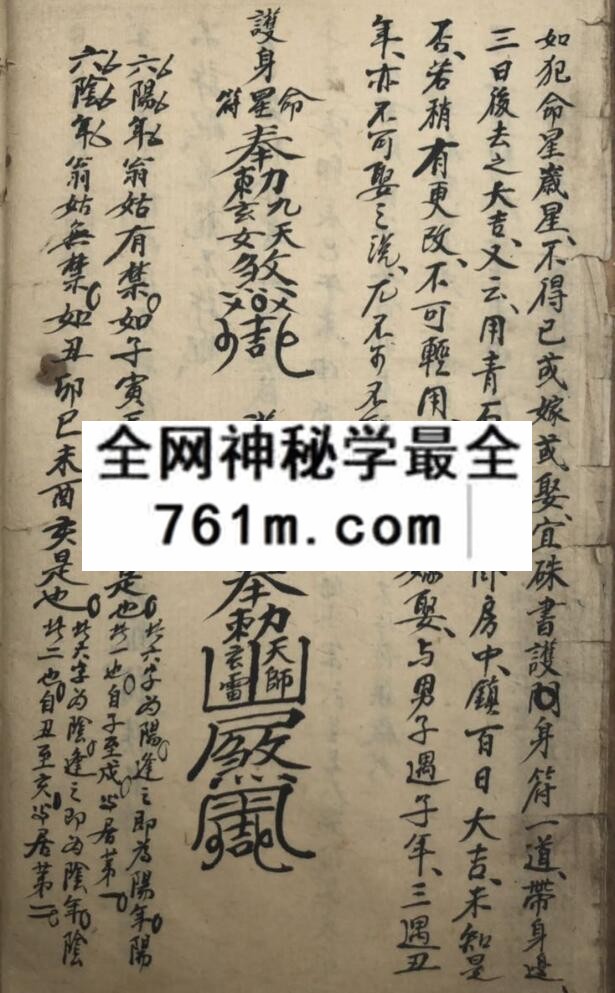 如犯命星歲星、不得已或嫁或娶、宜硃書護身符一道、帶身邊
三日後去之大吉、又云、用青石 房中、鎮百日大吉、未知是
否、若稍有更改、不可輕用 娶、与男子遇子年、三遇丑
年、亦不可娶之説、尤不可不
護身
命星符
奉勅九天玄女
奉勅天師玄雷
六陽年翁姑有禁、如子寅 是也 此六字為陽逢之即為陽年陽
此一也自子至戌 居第一
六陰年翁姑無禁、如丑卯巳未酉亥是也 此六字為陰逢之即為陰年陰
此二也自丑至亥 居第二
全网神秘学最全
761m.com